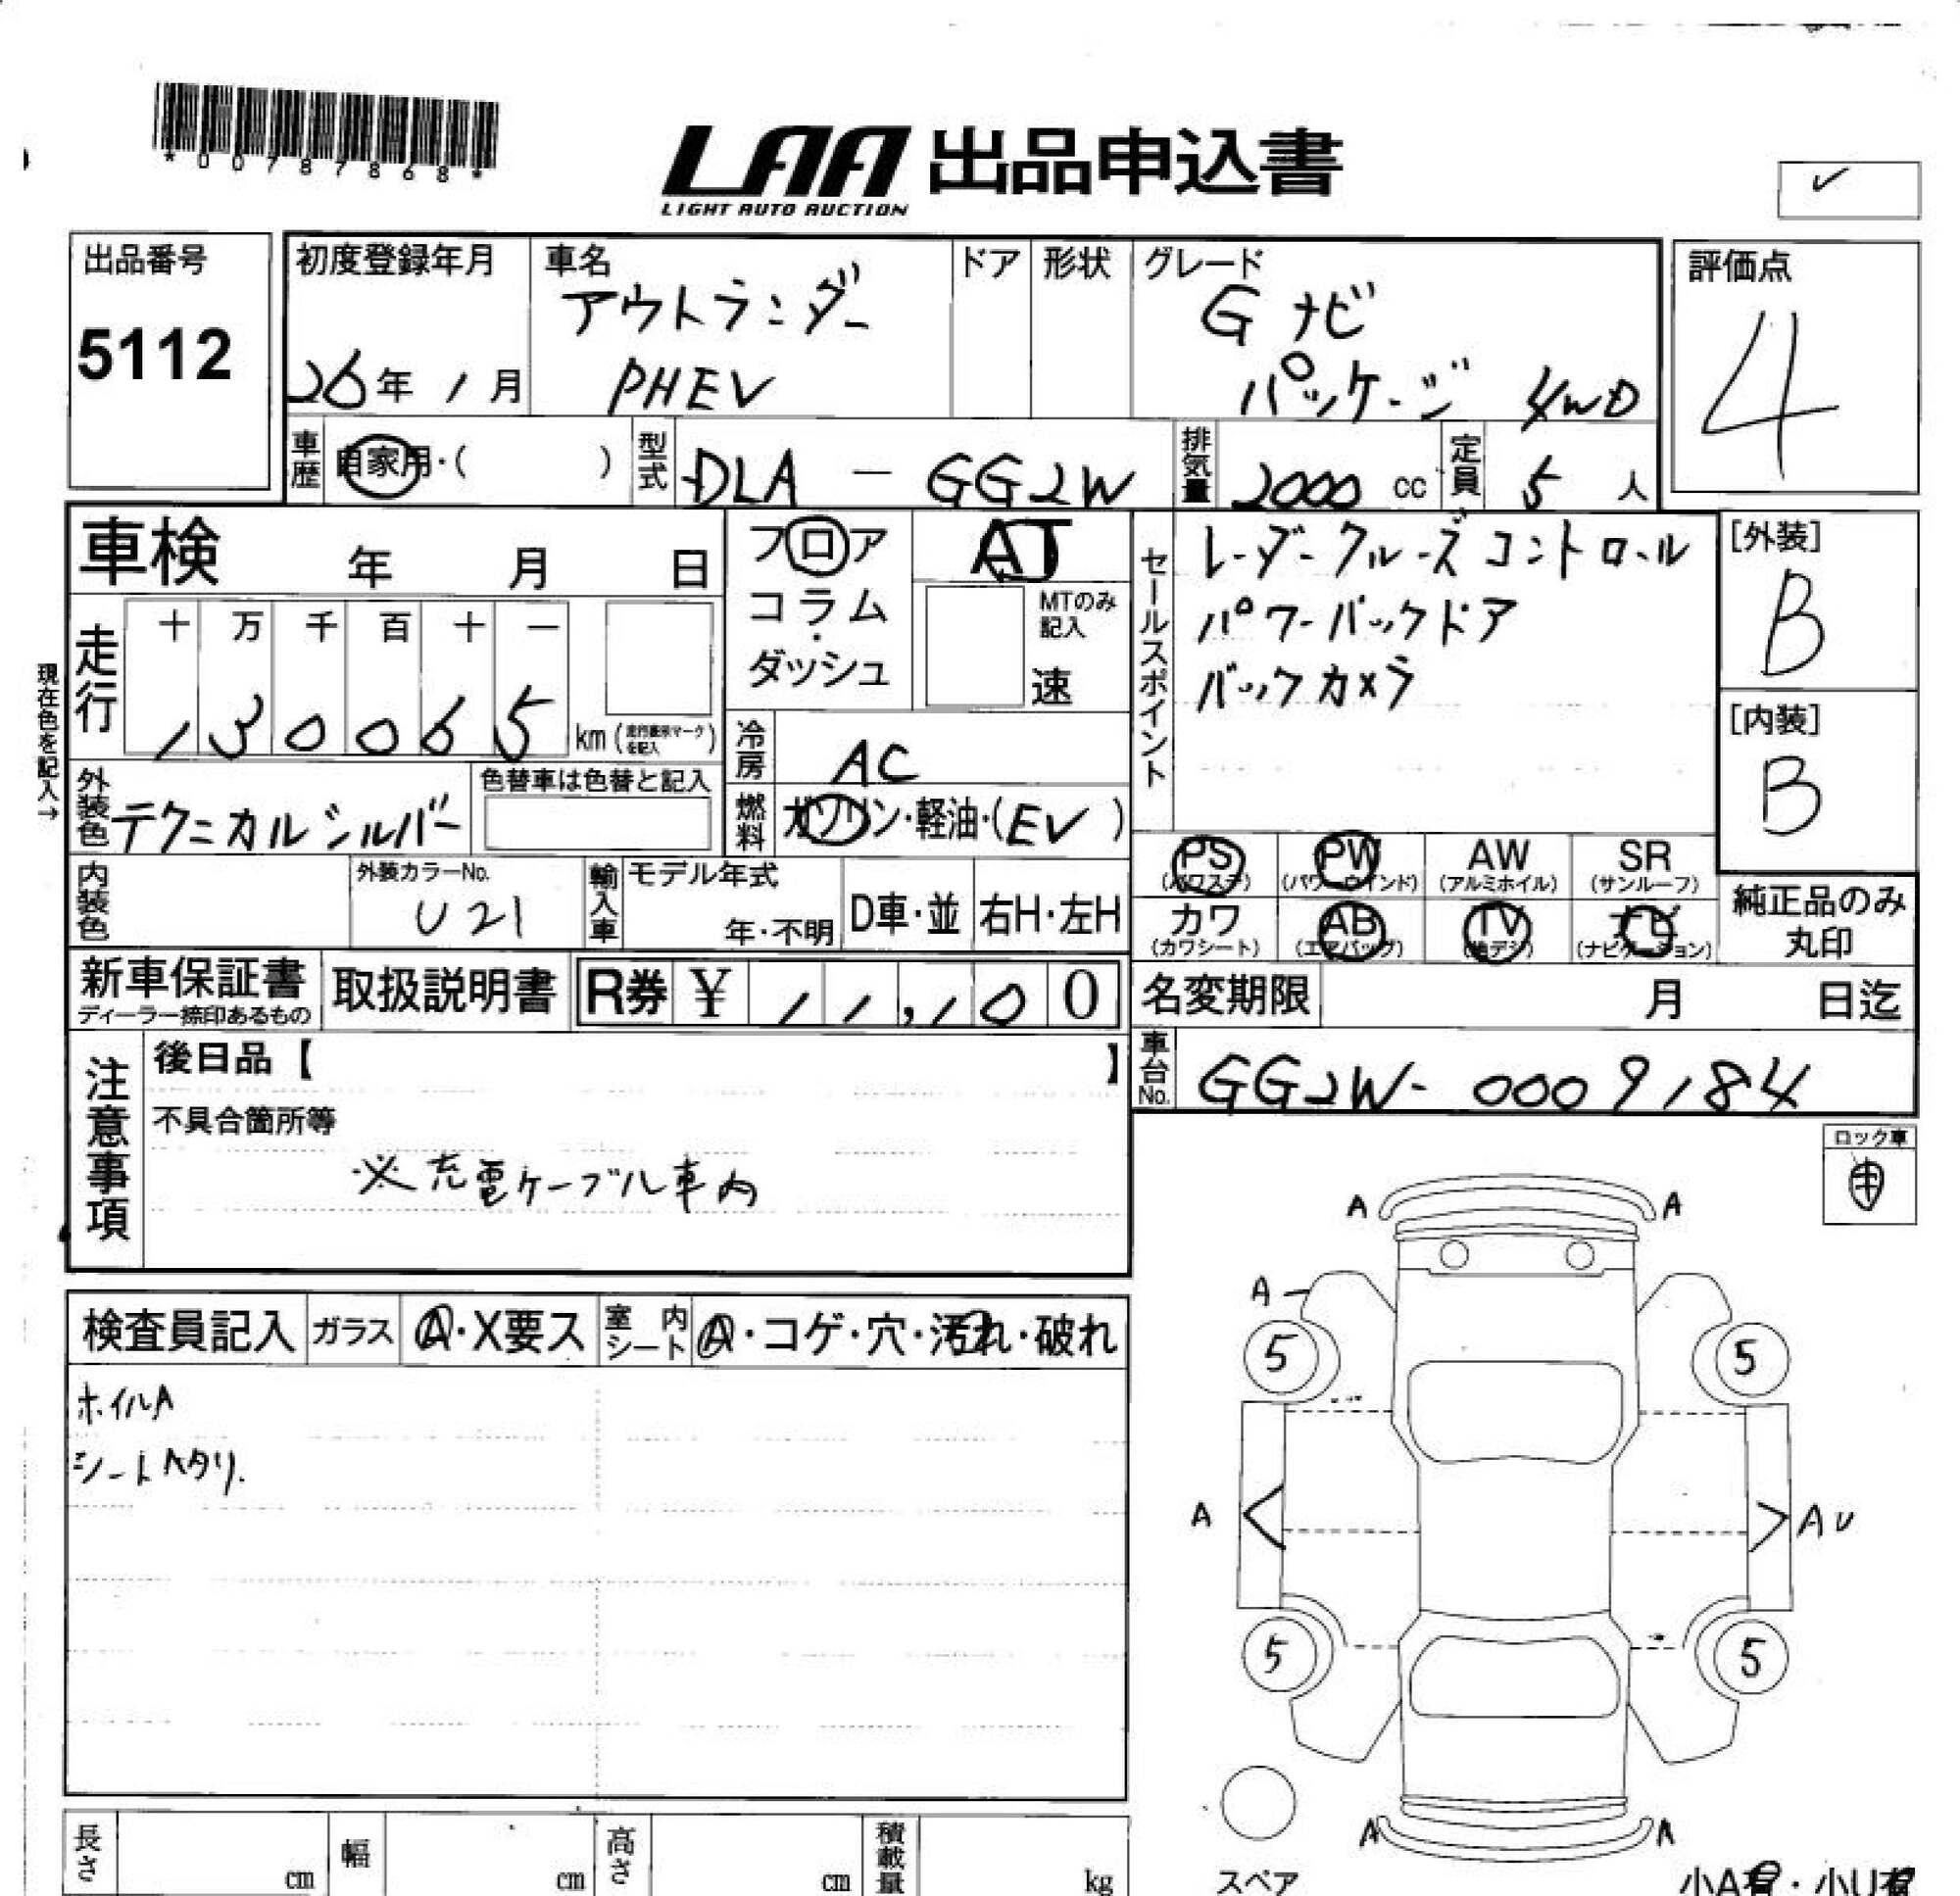 *00787868*
LAA 出品申込書
LIGHT AUTO AUCTION
✓
出品番号
5112
初度登録年月
26年 1月
車名
アウトランダー
PHEV
ドア
形状
グレード
G ナビ
パッケージ 4WD
評価点
4
車歴
自家用・( )
型式
DLA - GG2W
排気量
2000 cc
定員
5 人
車検 年 月 日
フロア
コラム・
ダッシュ
AT
MTのみ
記入
速
セールスポイント
レーダークルーズコントロール
パワーバックドア
バックカメラ
[外装]
B
[内装]
B
現在色を記入→
走行
十 万 千 百 十 一
1 3 0 0 6 5 km (走行表示マークを記入)
冷房
AC
外装色
テクニカルシルバー
色替車は色替と記入
燃料
ガソリン・軽油・(EV )
PS
(パワステ)
PW
(パワーウインド)
AW
(アルミホイル)
SR
(サンルーフ)
内装色
外装カラーNo.
U21
輸入車
モデル年式
年・不明
D車・並
右H・左H
カワ
(カワシート)
AB
(エアバッグ)
TV
(地デジ)
ナビ
(ナビゲーション)
純正品のみ
丸印
新車保証書
ディーラー捺印あるもの
取扱説明書
R券 ¥ 11,100
名変期限 月 日迄
車台No.
GG2W-0009184
注意事項
後日品【 】
不具合箇所等
※充電ケーブル車内
ロック車
検査員記入
ガラス
A・X要ス
室内シート
A・コゲ・穴・汚れ・破れ
ホイルA
シートヘタリ.
A A
A
5 5
A AU
5 5
A A
スペア
長さ cm
幅 cm
高さ cm
積載量 kg
小A有・小U有